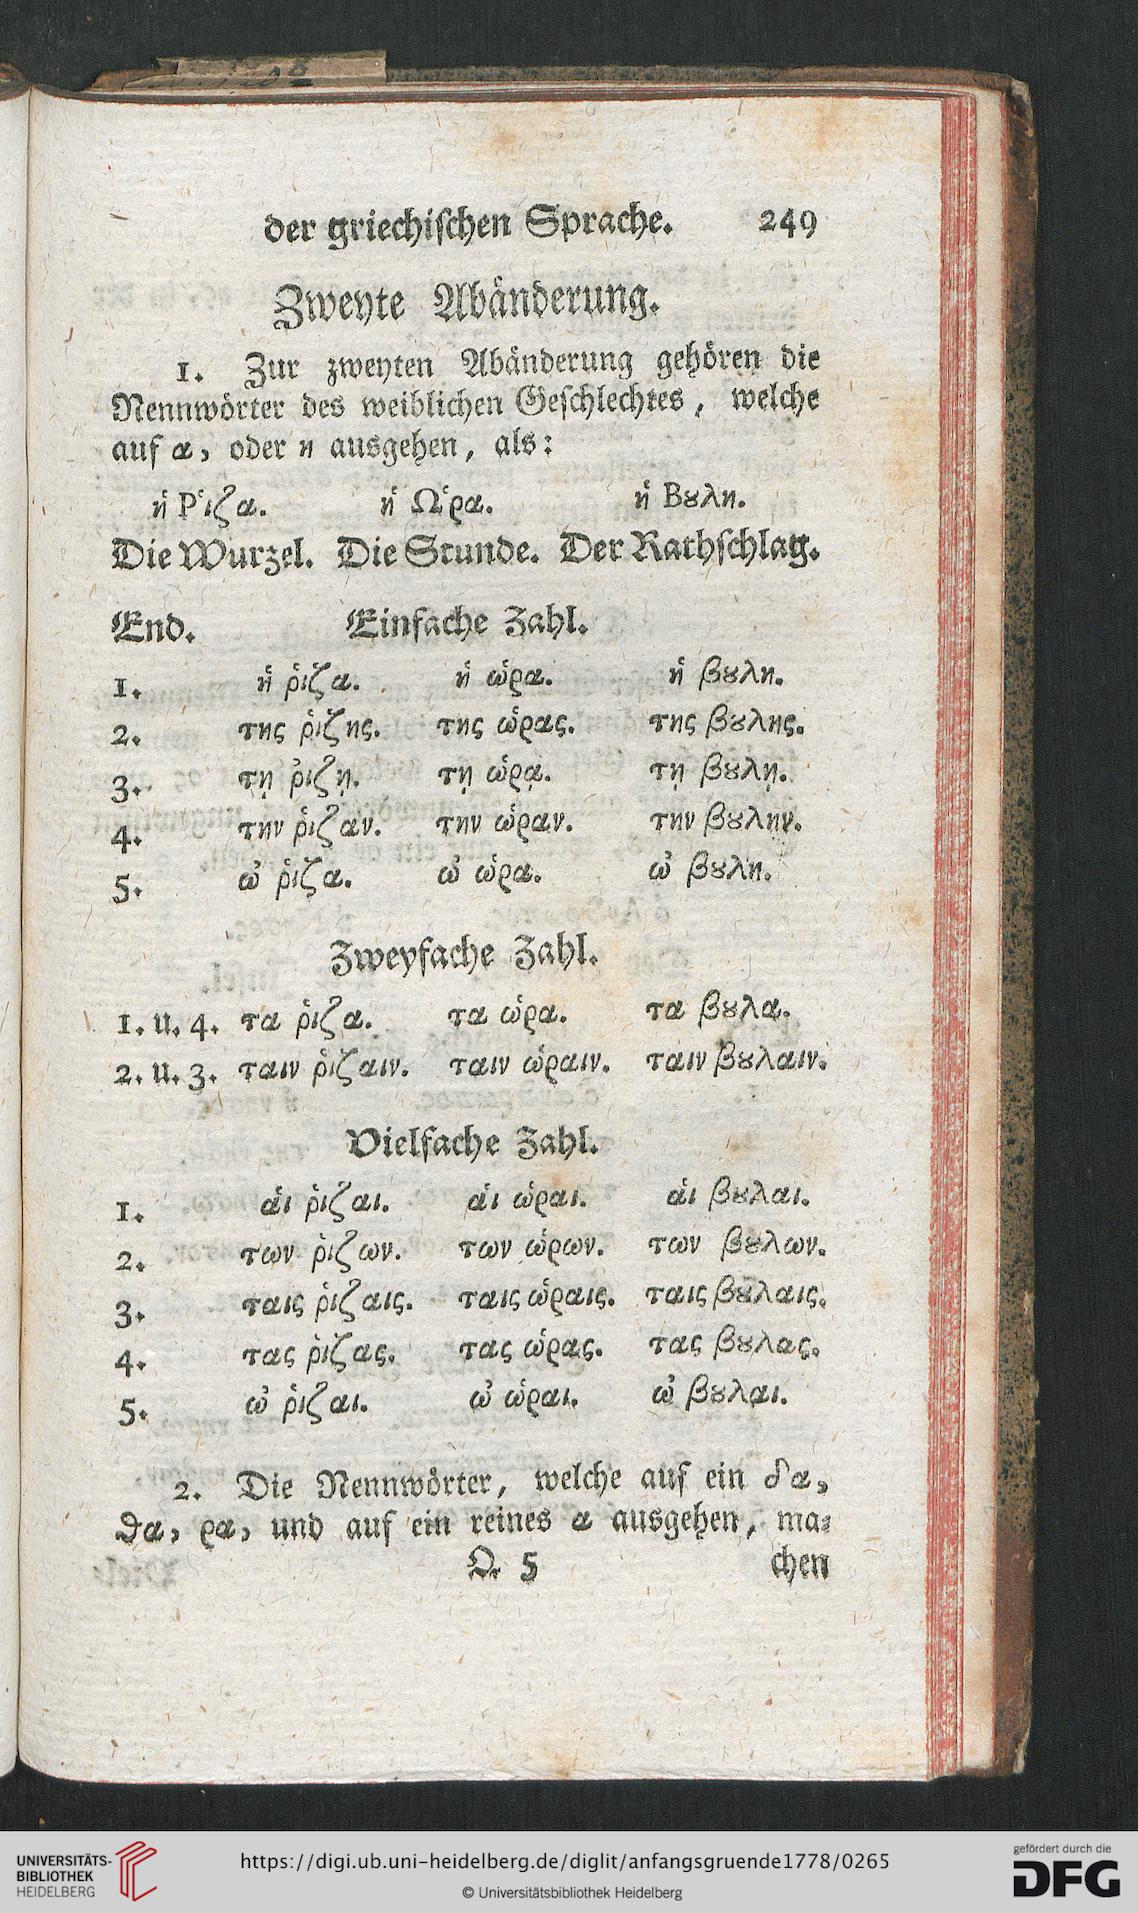 der griechischen Sprache. 249
Zweyte Abänderung.
1. Zur zweyten Abänderung gehören die
Nennwörter des weiblichen Geschlechtes, welche
auf α, oder η ausgehen, als:
ἡ Ῥιζα. ἡ Ὡρα. ἡ Βȣλη.
Die Wurzel. Die Stunde. Der Rathschlag.
End. Einfache Zahl.
1. ἡ ῥιζα. ἡ ὡρα. ἡ βȣλη.
2. της ῥιζης. της ὡρας. της βȣλης.
3. τῃ ῥιζῃ. τῃ ὡρᾳ. τῃ βȣλῃ.
4. την ῥιζαν. την ὡραν. την βȣλην.
5. ὠ ῥιζα. ὠ ὡρα. ὠ βȣλη.
Zweyfache Zahl.
1. u. 4. τα ῥιζα. τα ὡρα. τα βȣλα.
2. u. 3. ταιν ῥιζαιν. ταιν ὡραιν. ταιν βȣλαιν.
Vielfache Zahl.
1. ἁι ῥιζαι. ἁι ὡραι. ἁι βȣλαι.
2. των ῥιζων. των ὡρων. των βȣλων.
3. ταις ῥιζαις. ταις ὡραις. ταις βȣλαις.
4. τας ῥιζας. τας ὡρας. τας βȣλας.
5. ὠ ῥιζαι. ὠ ὡραι. ὠ βȣλαι.
2. Die Nennwörter, welche auf ein δα,
θα, ρα, und auf ein reines α ausgehen, ma-
Q 5 chen
UNIVERSITÄTS-
BIBLIOTHEK
HEIDELBERG
https://digi.ub.uni-heidelberg.de/diglit/anfangsgruende1778/0265
© Universitätsbibliothek Heidelberg
gefördert durch die
DFG